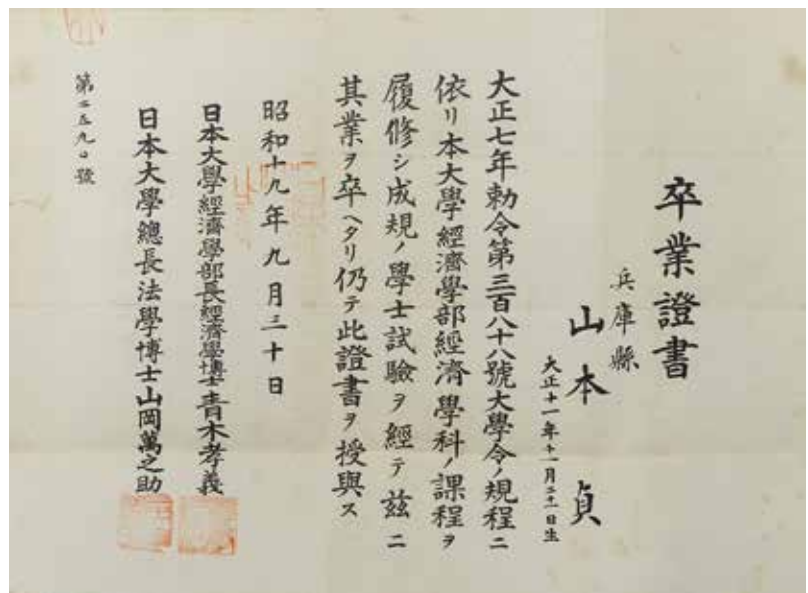 卒業證書
兵庫縣
山本 貞
大正十一年十一月二十一日生
大正七年勅令第三百八十八號大學令ノ規程ニ
依リ本大學經濟學部經濟學科ノ課程ヲ
履修シ成規ノ學士試驗ヲ經テ茲ニ
其業ヲ卒ヘタリ仍テ此證書ヲ授與ス
昭和十九年九月三十日
日本大學經濟學部長經濟學博士青木孝義
日本大學總長法學博士山岡萬之助